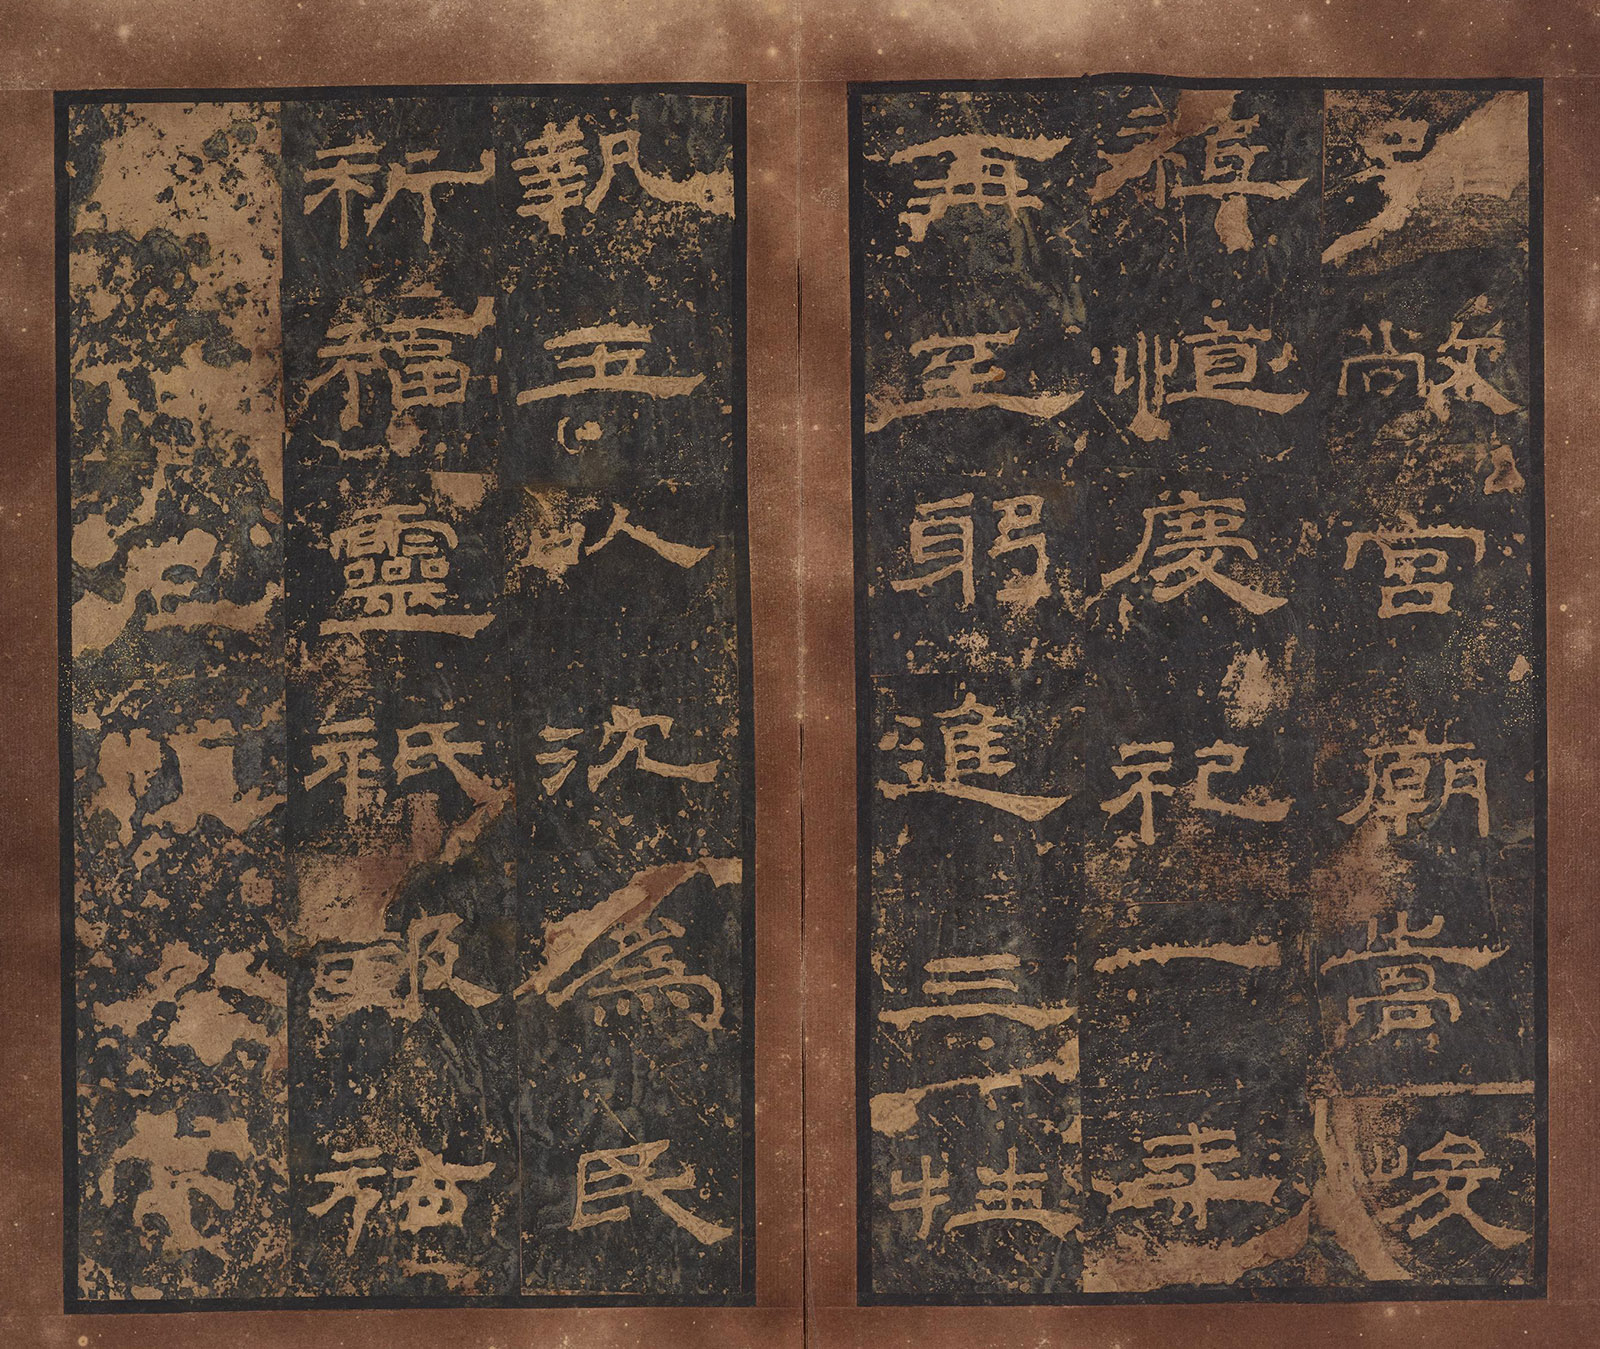 弘敞宮廟嵩峻
慎慶祀一年
再至躬進三牲
執玉以沈為民
祈福靈祇報祐